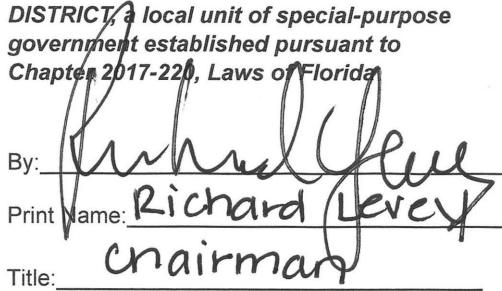 DISTRICT, a local unit of special-purpose
government established pursuant to
Chapter 2017-220, Laws of Florida
By:
Print Name: Richard Levey
Title: Chairman